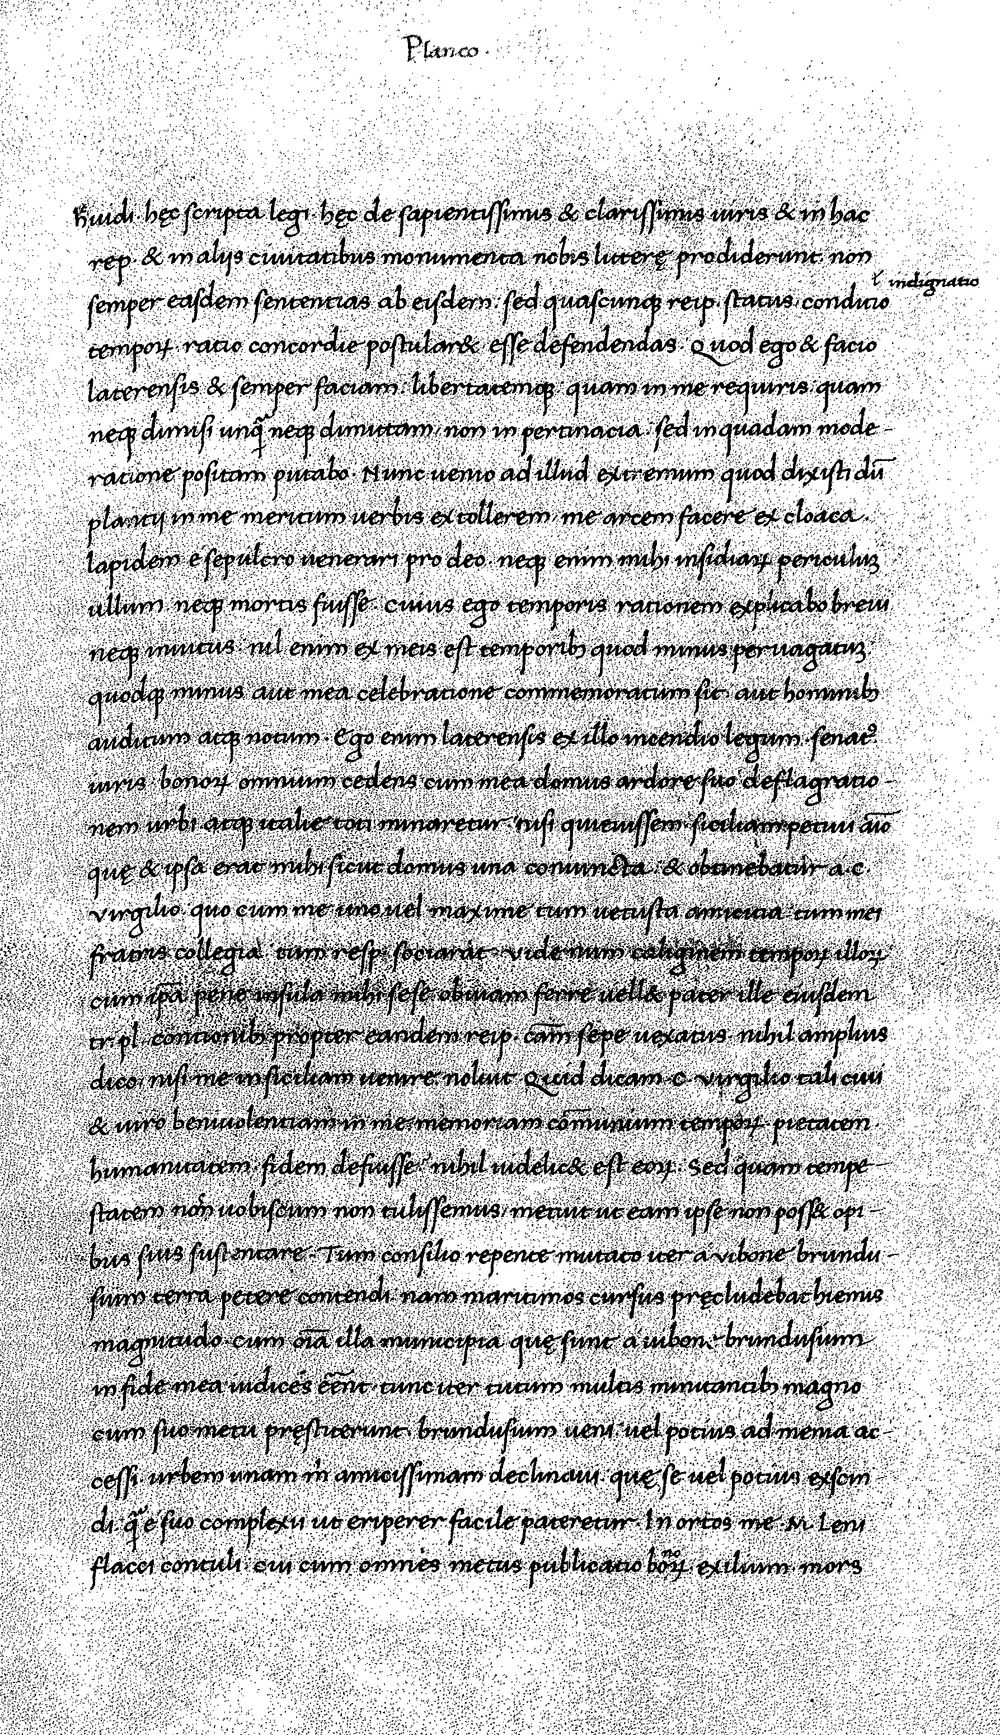 Planco.
h̃ uidi. hęc scripta legi. hęc de sapientissimus & clarissimis uiris & in hac
rep. & in alijs ciuitatibus monumenta nobis litterę prodiderunt. non
ł indignatio
semper easdem sententias ab eisdem. sed quascunq; reip. status. conditio
tempoꝝ. ratio concordie postular& esse defendendas. Quod ego & facio
laterensis & semper faciam. libertatemq; quam in me requiris. quam
neq; dimisi unq̃ neq; dimittam. non in pertinacia. sed in quadam mode-
ratione positam putabo. Nunc uenio ad illud extremum quod dixisti dū
plancij in me meritum uerbis extollerem. me arcem facere ex cloaca.
lapidem e sepulcro uenerari pro deo. neq; enim mihi insidiaꝝ periculuʒ
ullum. neq; mortis fuisse. cuius ego temporis rationem explicabo breui
neq; inuitus. nil enim ex meis est temporib; quod minus peruagatuʒ.
quodq; minus aut mea celebratione commemoratum sit. aut hominib;
auditum atq; notum. Ego enim laterensis ex illo incendio legum. senat⁹.
iuris. bonoꝝ omnium cedens cum mea domus ardore suo deflagratio-
nem urbi atq; italie toti minaretur. nisi quieuissem. siciliam petiui aīo
quę & ipsa erat mihi sicut domus una coniuncta. & obtinebatur a. c.
virgilio. quo cum me uno uel maxime tum uetusta amicitia. tum mei
fratris collegia. tum resp. sociarat. vide num caliginem tempoꝝ illoꝝ
cum ip̄a pene insula mihi sese obuiam ferre uell& pater ille eiusdem
tr. pl. contionib; propter eandem reip. cām sepe uexatus. nihil amplius
dico. nisi me in siciliam uenire noluit. Quid dicam. C. virgilio tali ciui
& uiro beniuolentiam in me. memoriam cōmunium tempoꝝ. pietatem.
humanitatem. fidem defuisse. nihil iudic& est eoꝝ. Sed quam tempe-
statem non uobiscum non tulissemus. metuit ut eam ipse non poss& opi-
bus suis sustentare. Tum consilio repente mutato iter a vibone brundu-
sium terra petere contendi. nam maritimos cursus pręcludebat hiemis
magnitudo. cum oīa illa municipia quę sunt a uibone brundusium
in fide mea iudices eēnt. tunc iter tutum multis minitantib; magno
cum suo metu pręstiterunt. brundusium ueni. uel potius ad menia ac-
cessi. urbem unam m̊ amicissimam declinaui. quę se uel potius exscin
di. q̃ e suo complexu ut eriperer facile pateretur. In ortos me. M. Leni
flacci contuli. cui cum omnes metus publicatio bonoꝝ. exilium. mors